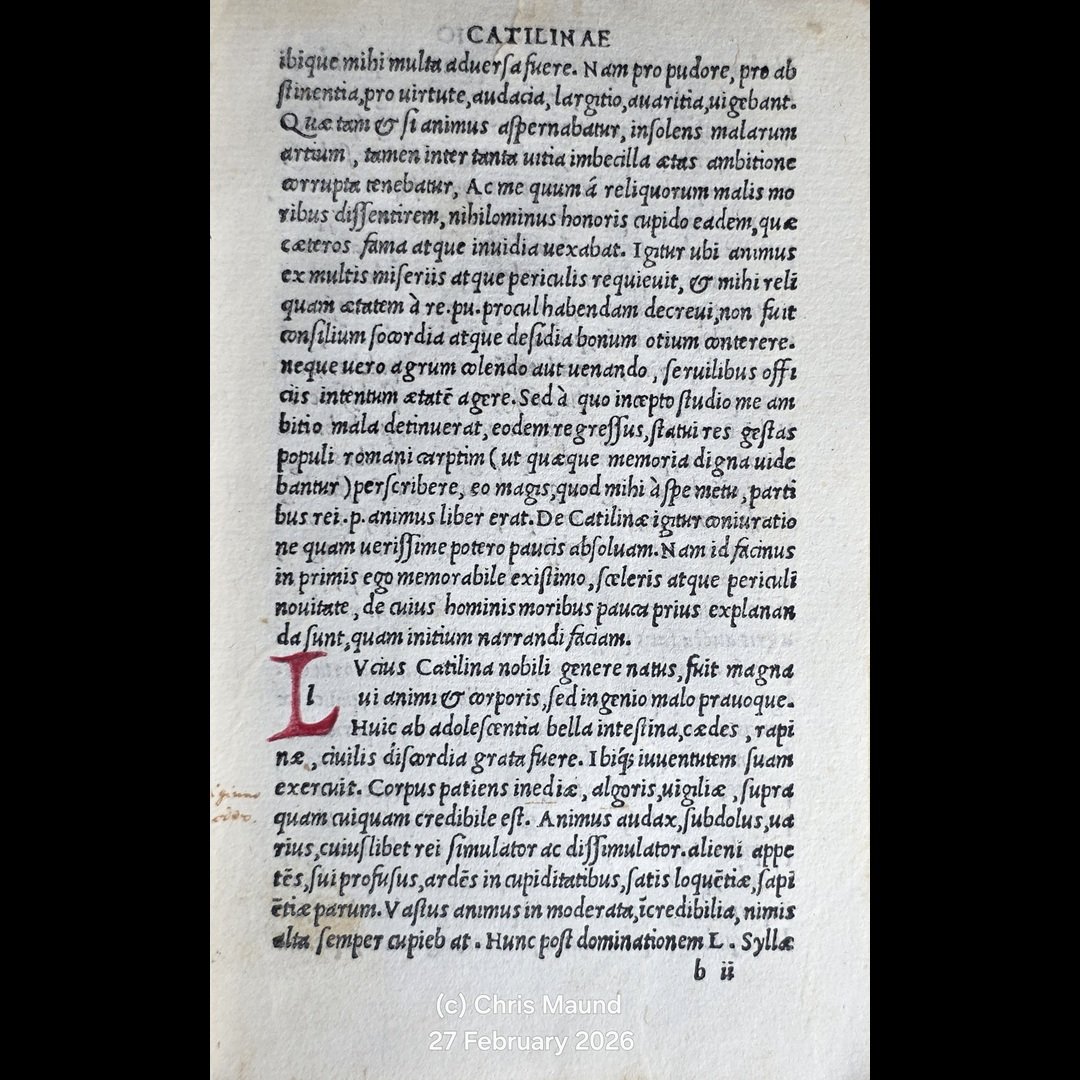 CATILINAE
ibique mihi multa aduersa fuere. Nam pro pudore, pro ab
stinentia, pro uirtute, audacia, largitio, auaritia, uigebant.
Quæ tam & si animus aspernabatur, insolens malarum
artium, tamen inter tanta uitia imbecilla ætas ambitione
corrupta tenebatur, Ac me quum á reliquorum malis mo
ribus dissentirem, nihilominus honoris cupido eadem, quæ
cæteros fama atque inuidia uexabat. Igitur ubi animus
ex multis miseriis atque periculis requieuit, & mihi reli
quam ætatem à re.pu. procul habendam decreui, non fuit
consilium socordia atque desidia bonum otium conterere.
neque uero agrum colendo aut uenando, seruilibus offi
ciis intentum ætatē agere. Sed à quo incepto studio me am
bitio mala detinuerat, eodem regressus, statui res gestas
populi romani carptim ( ut quæque memoria digna uide
bantur ) perscribere, eo magis, quod mihi à spe metu, parti
bus rei.p. animus liber erat. De Catilinæ igitur coniuratio
ne quam uerissime potero paucis absoluam. Nam id facinus
in primis ego memorabile existimo, sceleris atque periculi
nouitate, de cuius hominis moribus pauca prius explanan
da sunt, quam initium narrandi faciam.
LVcius Catilina nobili genere natus, fuit magna
l ui animi & corporis, sed ingenio malo prauoque.
Huic ab adolescentia bella intestina, cædes, rapi
næ, ciuilis discordia grata fuere. Ibiq; iuuentutem suam
exercuit. Corpus patiens inediæ, algoris, uigiliæ, supra
quam cuiquam credibile est. Animus audax, subdolus, ua
rius, cuiuslibet rei simulator ac dissimulator. alieni appe
tēs, sui profusus, ardēs in cupiditatibus, satis loquētiæ, sapi
ētiæ parum. Vastus animus in moderata, īcredibilia, nimis
alta semper cupieb at. Hunc post dominationem L. Syllæ
b ii
(c) Chris Maund
27 February 2026